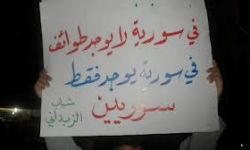 في سورية لا يوجد طوائف
في سورية يوجد فقط
سوريين
شباب
الزبداني